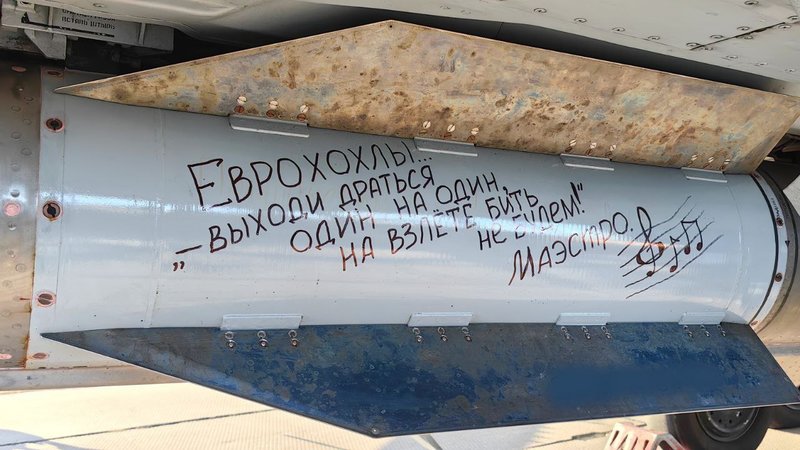 ЕВРОХОХЛЫ...
– ВЫХОДИ ДРАТЬСЯ
ОДИН НА ОДИН,
„НА ВЗЛЁТЕ БИТЬ
НЕ БУДЕМ!"
МАЭСТРО.